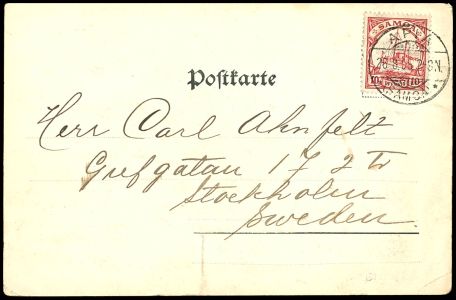 SAMOA
APIA
10 10
SAMOA
Postkarte
Herr Carl Ahnfelt
Grefgatan 17 2 Tr
Stockholm
Sweden.